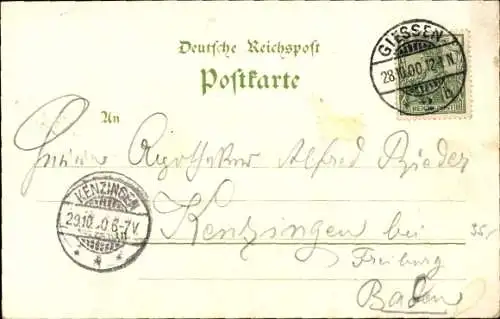 GIESSEN
28.10.00.12-1N.
Deutsche Reichspost
Postkarte
An
Apotheker Alfred Bieder
KENZINGEN
29.10.00.6-7V.
Kenzingen bei
35,-
Freiburg
Baden